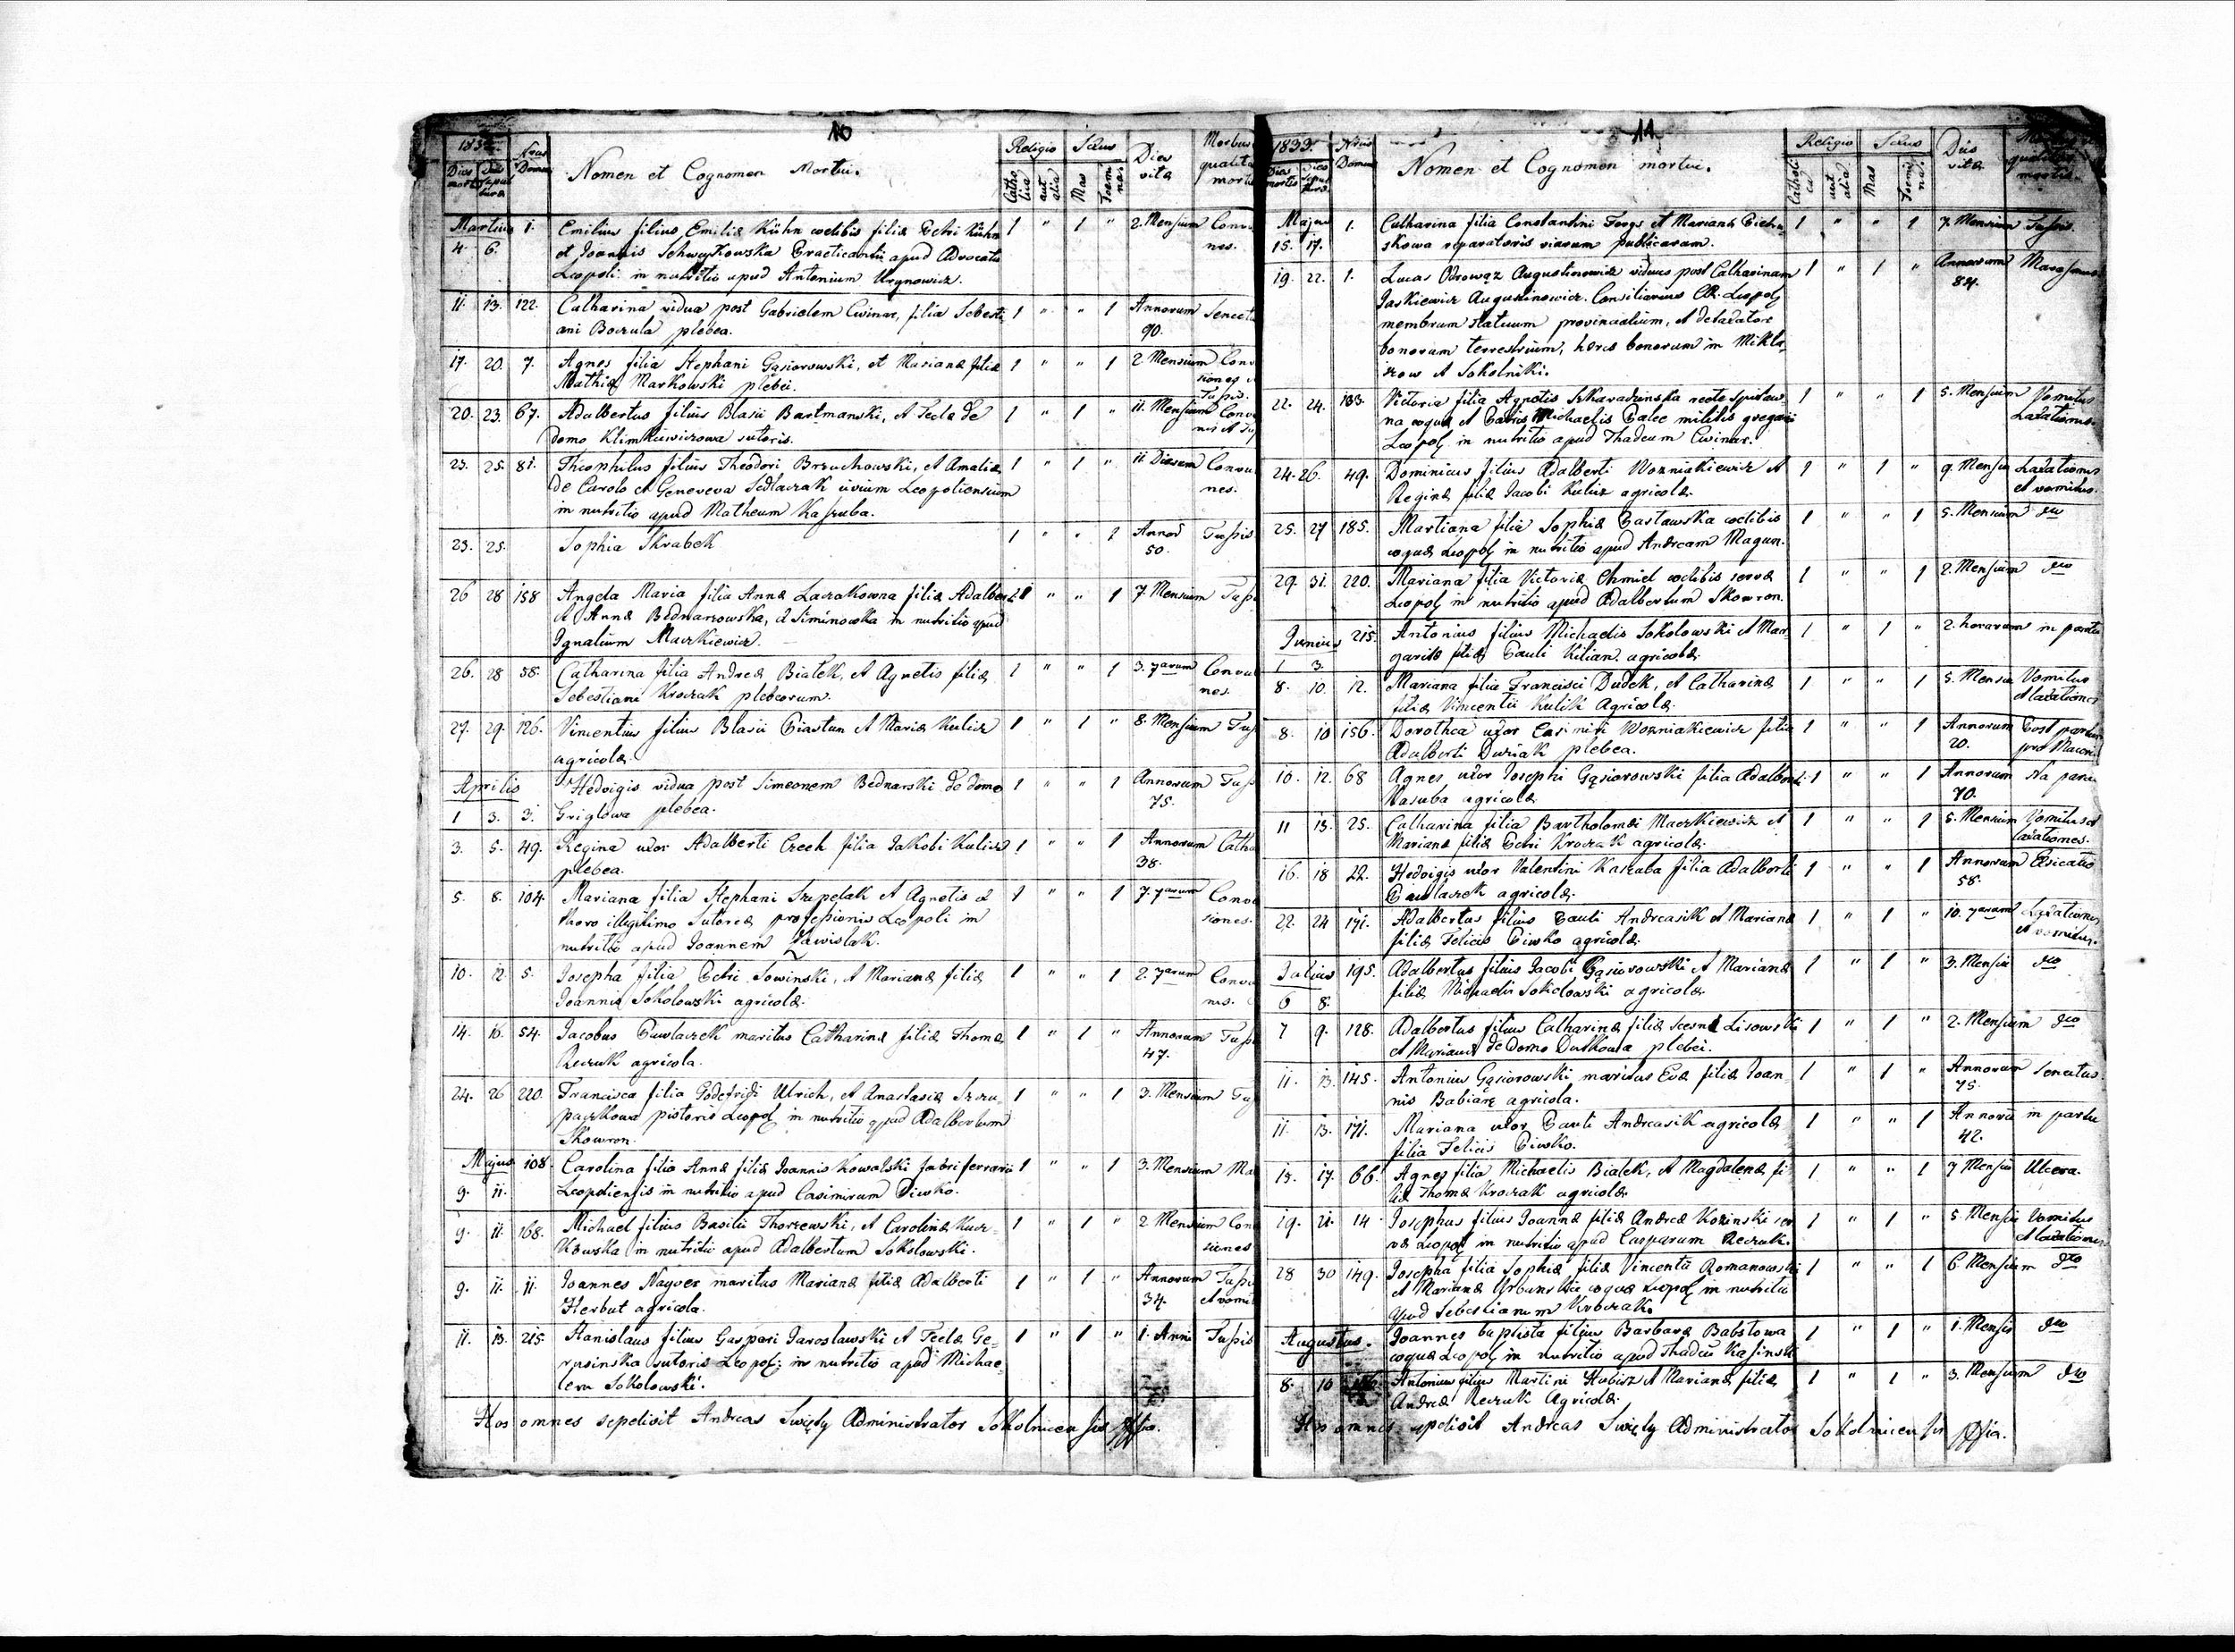 10
Dies mortis Dies sepulturæ Nrus Domus Nomen et Cognomen Mortui. Religio Catholica aut alia Sexus Mas Foemina Dies vitæ Morbus qualitas mortis
Martius 1. Emilius filius Emiliæ Kühn coelibis filiæ Petri Kühn 1 " 1 " 2. Mensium
4. 6. et Joannis Practicantis apud Advocatu
Leopoli in nutritio apud Antonium Krynowicz.
11. 13. 122. Catharina vidua post Gabrielem Cwinar, filia Sebasti 1 " " 1 Annorum
ani Boczula plebea. 90.
17. 20. 7. Agnes filia Stephani Gąsiorowski, et Marianæ filiæ 1 " " 1 2 Mensium
Mathiæ Markowski plebei.
20. 23. 67. Adalbertus filius Blasii Bartmanski, et Teclæ de 1 " 1 " 11. Mensium
domo Klimkiewiczowa sutoris.
23. 25. 81. Theophilus filius Theodori Brzuchowski, et Amaliæ 1 " 1 " 11. Dierum
de Carolo et Geneveva Sedlaczak civium Leopoliensium nes.
in nutritio apud Matheum Kaszuba.
23. 25. Sophia Skrabek 1 " " 1 Annor Tussis
50.
26 28 158 Angela Maria filia Annæ Laczakowna filiæ Adalberti 1 " " 1 7 Mensium
et Annæ Bednarzowska, in nutritio apud
Ignatium Maczkiewicz.
26. 28 58. Catharina filia Andreæ Bialek, et Agnetis filiæ 1 " " 1 3. 7arum
Sebestiani Kroczak plebeorum. nes.
27. 29. 126. Vincentius filius Blasii Piastun et Mariæ Kulicz 1 " 1 " 8. Mensium
agricolæ.
Aprilis Hedvigis vidua post Simeonem Bednarski de domo 1 " " 1 Annorum
1 3. 3. Griglowa plebea. 75.
3. 5. 49. Regina uxor Adalberti Czech filia Jakobi Kulicz 1 " " 1 Annorum
plebea. 38.
5. 8. 104. Mariana filia Stephani Szpelak et Agnetis 1 " " 1 7. 7arum
thoro illegitimo Sutoreæ professionis Leopoli in
nutritio apud Joannem Zawislak.
10. 12. 5. Josepha filia Petri Sowinski, et Marianæ filiæ 1 " " 1 2. 7arum
Joannis Sokolowski agricolæ.
14. 16. 54. Jacobus Pawlaczek maritus Catharinæ filiæ Thomæ 1 " 1 " Annorum
Reczuk agricola. 47.
24. 26 220. Francisca filia Godefridi Ulrich, et Anastasiæ 1 " " 1 3. Mensium
pistoris Leopol in nutritio apud Adalbertum
Skowron.
Majus 108. Carolina filia Annæ filiæ Joannis Kowalski fabri ferrario 1 " " 1 3. Mensium
9. 11. Leopoliensis in nutritio apud Casimirum Piwko.
9. 11. 168. Michael filius Basilii Thorzewski, et Carolinæ 1 " 1 " 2 Mensium
in nutritio apud Adalbertum Sokolowski.
9. 11. 11. Joannes Nayver maritus Marianæ filiæ Adalberti 1 " 1 " Annorum
Herbut agricola. 34.
11. 13. 215. Stanislaus filius Gaspari Jaroslawski et Teclæ Ge= 1 " 1 " 1. Anni Tussis
sutoris Leopol: in nutritio apud Michae
lem Sokolowski.
Hos omnes sepelivit Andreas Swięty Administrator Sokolnicensis
11.
1833. Dies mortis Dies Sepulturæ Nrus Domus Nomen et Cognomen mortui. Religio Catholica aut alia Sexus Mas Foemina Dies vitæ
Majus 1. Catharina filia Constantini et Marianæ 1 " " 1 7. Mensium Tussis.
15. 17. skowa reparatoris viarum publicarum.
19. 22. 1. Lucas Odrowąz Augustinowicz viduus post Catharinam 1 " 1 " Annorum
Jaskiewicz Augustinowicz. Consiliarius CR. Leopol 84.
membrum statuum provincialium, et detaxator
bonorum terrestrium, hæres bonorum in Mikla=
szow et Sokolniki.
22. 24. 133. Victoria filia Agnetis recte 1 " " 1 5. Mensium Vomitus
na coquæ et Patris Michaelis Palec militis gregarii Laxationes.
Leopol in nutritio apud Thadeum Cwinar.
24. 26. 49. Dominicus filius Adalberti Wozniakiewicz et 1 " 1 " 9. Mensiu Laxationes
Reginæ filiæ Jacobi Kulicz agricolæ. et vomitus.
25. 27 185. Martiana filia Sophiæ Pastawska coelibis 1 " " 1 5. Mensium dto
coquæ Leopol in nutritio apud Andream Magun.
29. 31. 220. Mariana filia Victoriæ Chmiel coelibis servæ 1 " " 1 2. Mensium dto
Leopol in nutritio apud Adalbertum Skowron.
Junius 215. Antonius filius Michaelis Sokolowski et Mar 1 " 1 " 2. horarum in partu
1 3. garitæ filiæ Pauli Kilian. agricolæ
8. 10. 12. Mariana filia Francisci Dudek, et Catharinæ 1 " " 1 5. Mensiu Vomitus
filiæ Vincentii Kulik Agricolæ. et laxationes
8. 10 156. Dorothea uxor Casimiri Wozniakiewicz filia 1 " " 1 Annorum Post partum
Adalberti Duziak plebea. 20.
10. 12. 68 Agnes uxor Josephi Gąsiorowski filia Adalberti 1 " " 1 Annorum
Kasuba agricolæ 70.
11 13. 25. Catharina filia Bartholomæi Maczkiewicz et 1 " " 1 5. Mensium Vomitus et
Marianæ filiæ Petri Kroczak agricolæ. laxationes.
16. 18 22. Hedvigis uxor Valentini Kaszuba filia Adalberti 1 " " 1 Annorum
Pawlaczek agricolæ. 58.
22. 24 171. Adalbertus filius Pauli Andreasik et Marianæ 1 " 1 " 10. 7arum Laxationes
filiæ Felicis Piwko agricolæ. et vomitus.
Julius 195. Adalbertus filius Jacobi Gąsiorowski et Marianæ 1 " 1 " 3. Mensiu dto
6 8. filiæ Michaelis Sokolowski agricolæ.
7 9. 128. Adalbertus filius Catharinæ filiæ Lisowski 1 " 1 " 2. Mensium dto
et Marianæ de domo Dutkowa plebei.
11. 13. 145. Antonius Gąsiorowski maritus Evæ filiæ Joan= 1 " 1 " Annorum Senectus.
nis Babiarz agricola. 75.
11. 13. 171. Mariana uxor Pauli Andreasik agricolæ 1 " " 1 Annoru in partu
filia Felicis Piwko. 42.
15. 17. 66. Agnes filia Michaelis Bialek, et Magdalenæ fi= 1 " " 1 7 Mensiu Ulcera.
liæ Thomæ Kroczak agricolæ.
19. 21. 14 Josephus filius Joannæ filiæ Andreæ Kozinski ser 1 " 1 " 5. Mensiu Vomitus
væ Leopol in nutritio apud Casparum Reczuk. et laxationes
28 30 149. Josepha filia Sophiæ filiæ Vincentii Romanowski 1 " " 1 6. Mensium dto
et Marianæ Urbanska coquæ Leopol in nutritio
apud Sebestianum Kroczak
Augustus. Joannes baptista filius Barbaræ Babstowa 1 " 1 " 1. Mensis dto
coquæ Leopol in nutritio apud Thadeu
8. 10 Antonius filius Martini Hubisz et Marianæ filiæ 1 " 1 " 3. Mensium dto
Andreæ Reczuk Agricolæ.
Hos omnes sepelivit Andreas Swięty Administrator Sokolnicensis